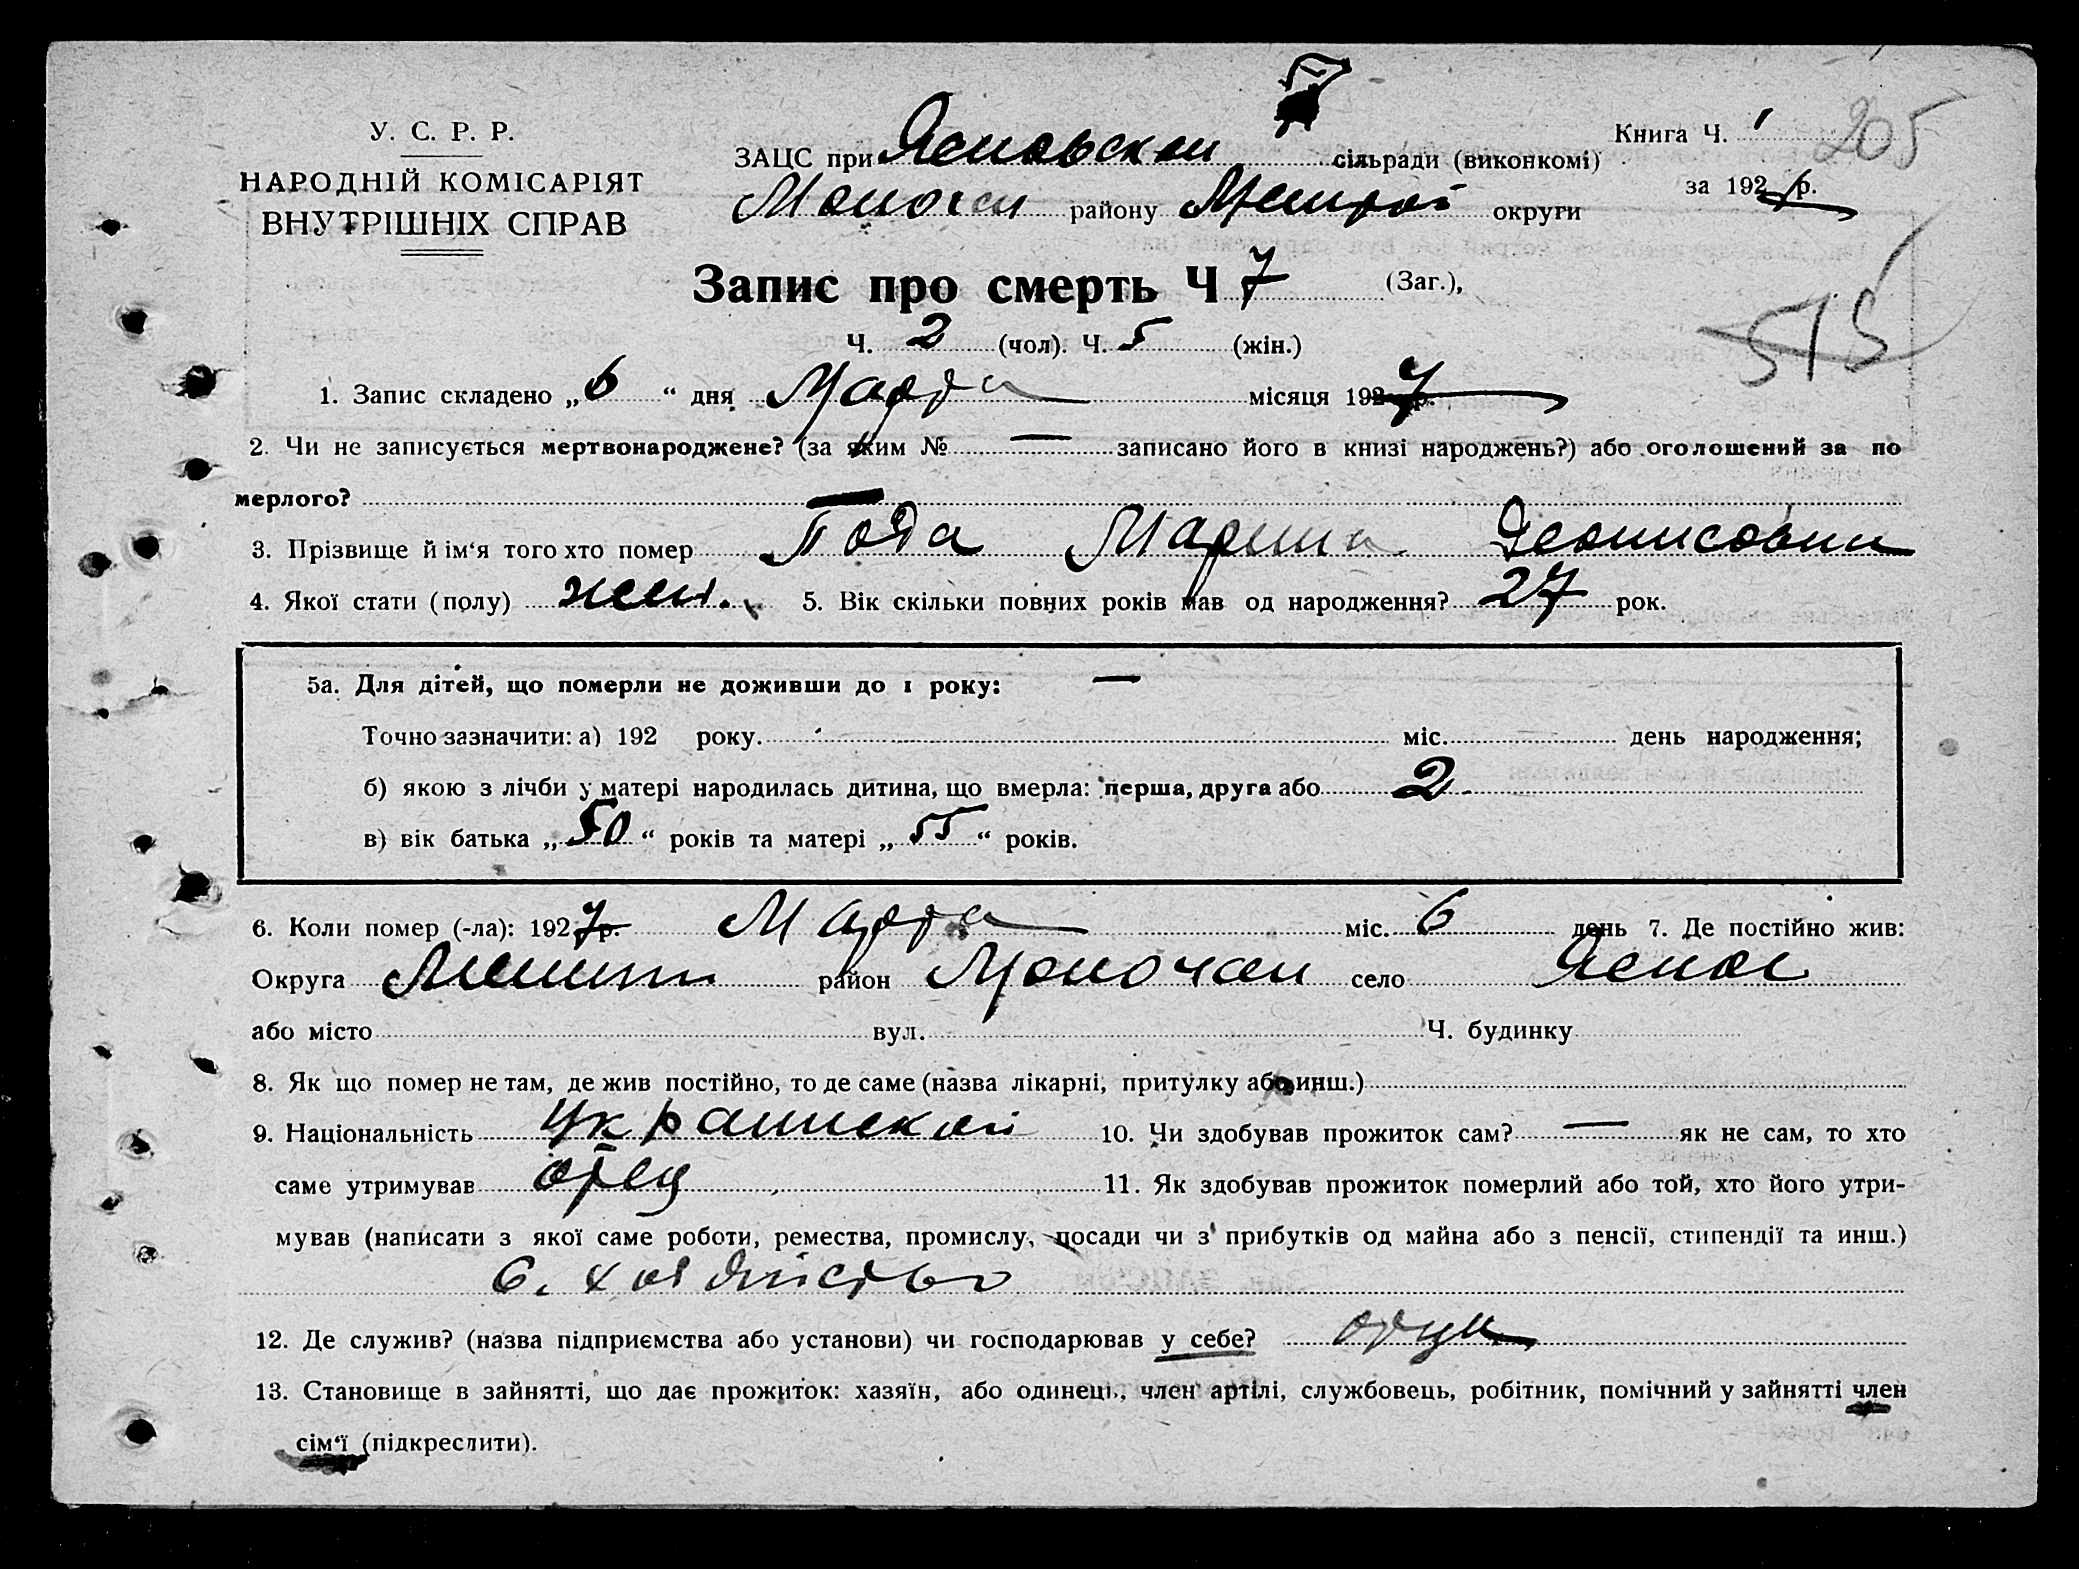 У. С. Р. Р.
НАРОДНІЙ КОМІСАРІЯТ
ВНУТРІШНІХ СПРАВ
Книга Ч. 1
205
ЗАЦС при Ясновском сільради (виконкомі)
за 192 р.
району округи
Запис про смерть Ч 7 (Заг.),
Ч. 2 (чол). Ч. 5 (жін.)
515
1. Запис складено „6“ дня Марта місяця 1927 р.
2. Чи не записується мертвонароджене? (за яким № — записано його в книзі народжень?) або оголошений за по
мерлого? —
3. Прізвище й ім‘я того хто помер Года Марина Денисовна
4. Якої стати (полу) жен. 5. Вік скільки повних років мав од народження? 27 рок.
5а. Для дітей, що померли не доживши до 1 року: —
Точно зазначити: а) 192 року. міс. день народження;
б) якою з лічби у матері народилась дитина, що вмерла: перша, друга або 2.
в) вік батька „50“ років та матері „55“ років.
6. Коли помер (-ла): 1927 р. Марта міс. 6 день 7. Де постійно жив:
Округа район село Ясное
або місто вул. Ч. будинку
8. Як що помер не там, де жив постійно, то де саме (назва лікарні, притулку або инш.)
9. Національність Украинской 10. Чи здобував прожиток сам? — як не сам, то хто
саме утримував отец 11. Як здобував прожиток померлий або той, хто його утри-
мував (написати з якої саме роботи, ремества, промислу, посади чи з прибутків од майна або з пенсії, стипендії та инш.)
С. хозяйство
12. Де служив? (назва підприємства або установи) чи господарював у себе? отца
13. Становище в зайнятті, що дає прожиток: хазяїн, або одинець, член артілі, службовець, робітник, помічний у зайнятті член
сім‘ї (підкреслити).